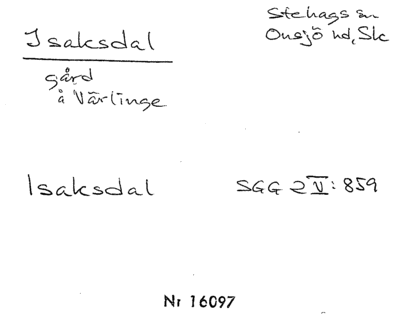 Isaksdal
Stehags sn
Onsjö hd, Sk
gård
å Värlinge
Isaksdal
SGG 2 V: 859
Nr 16097